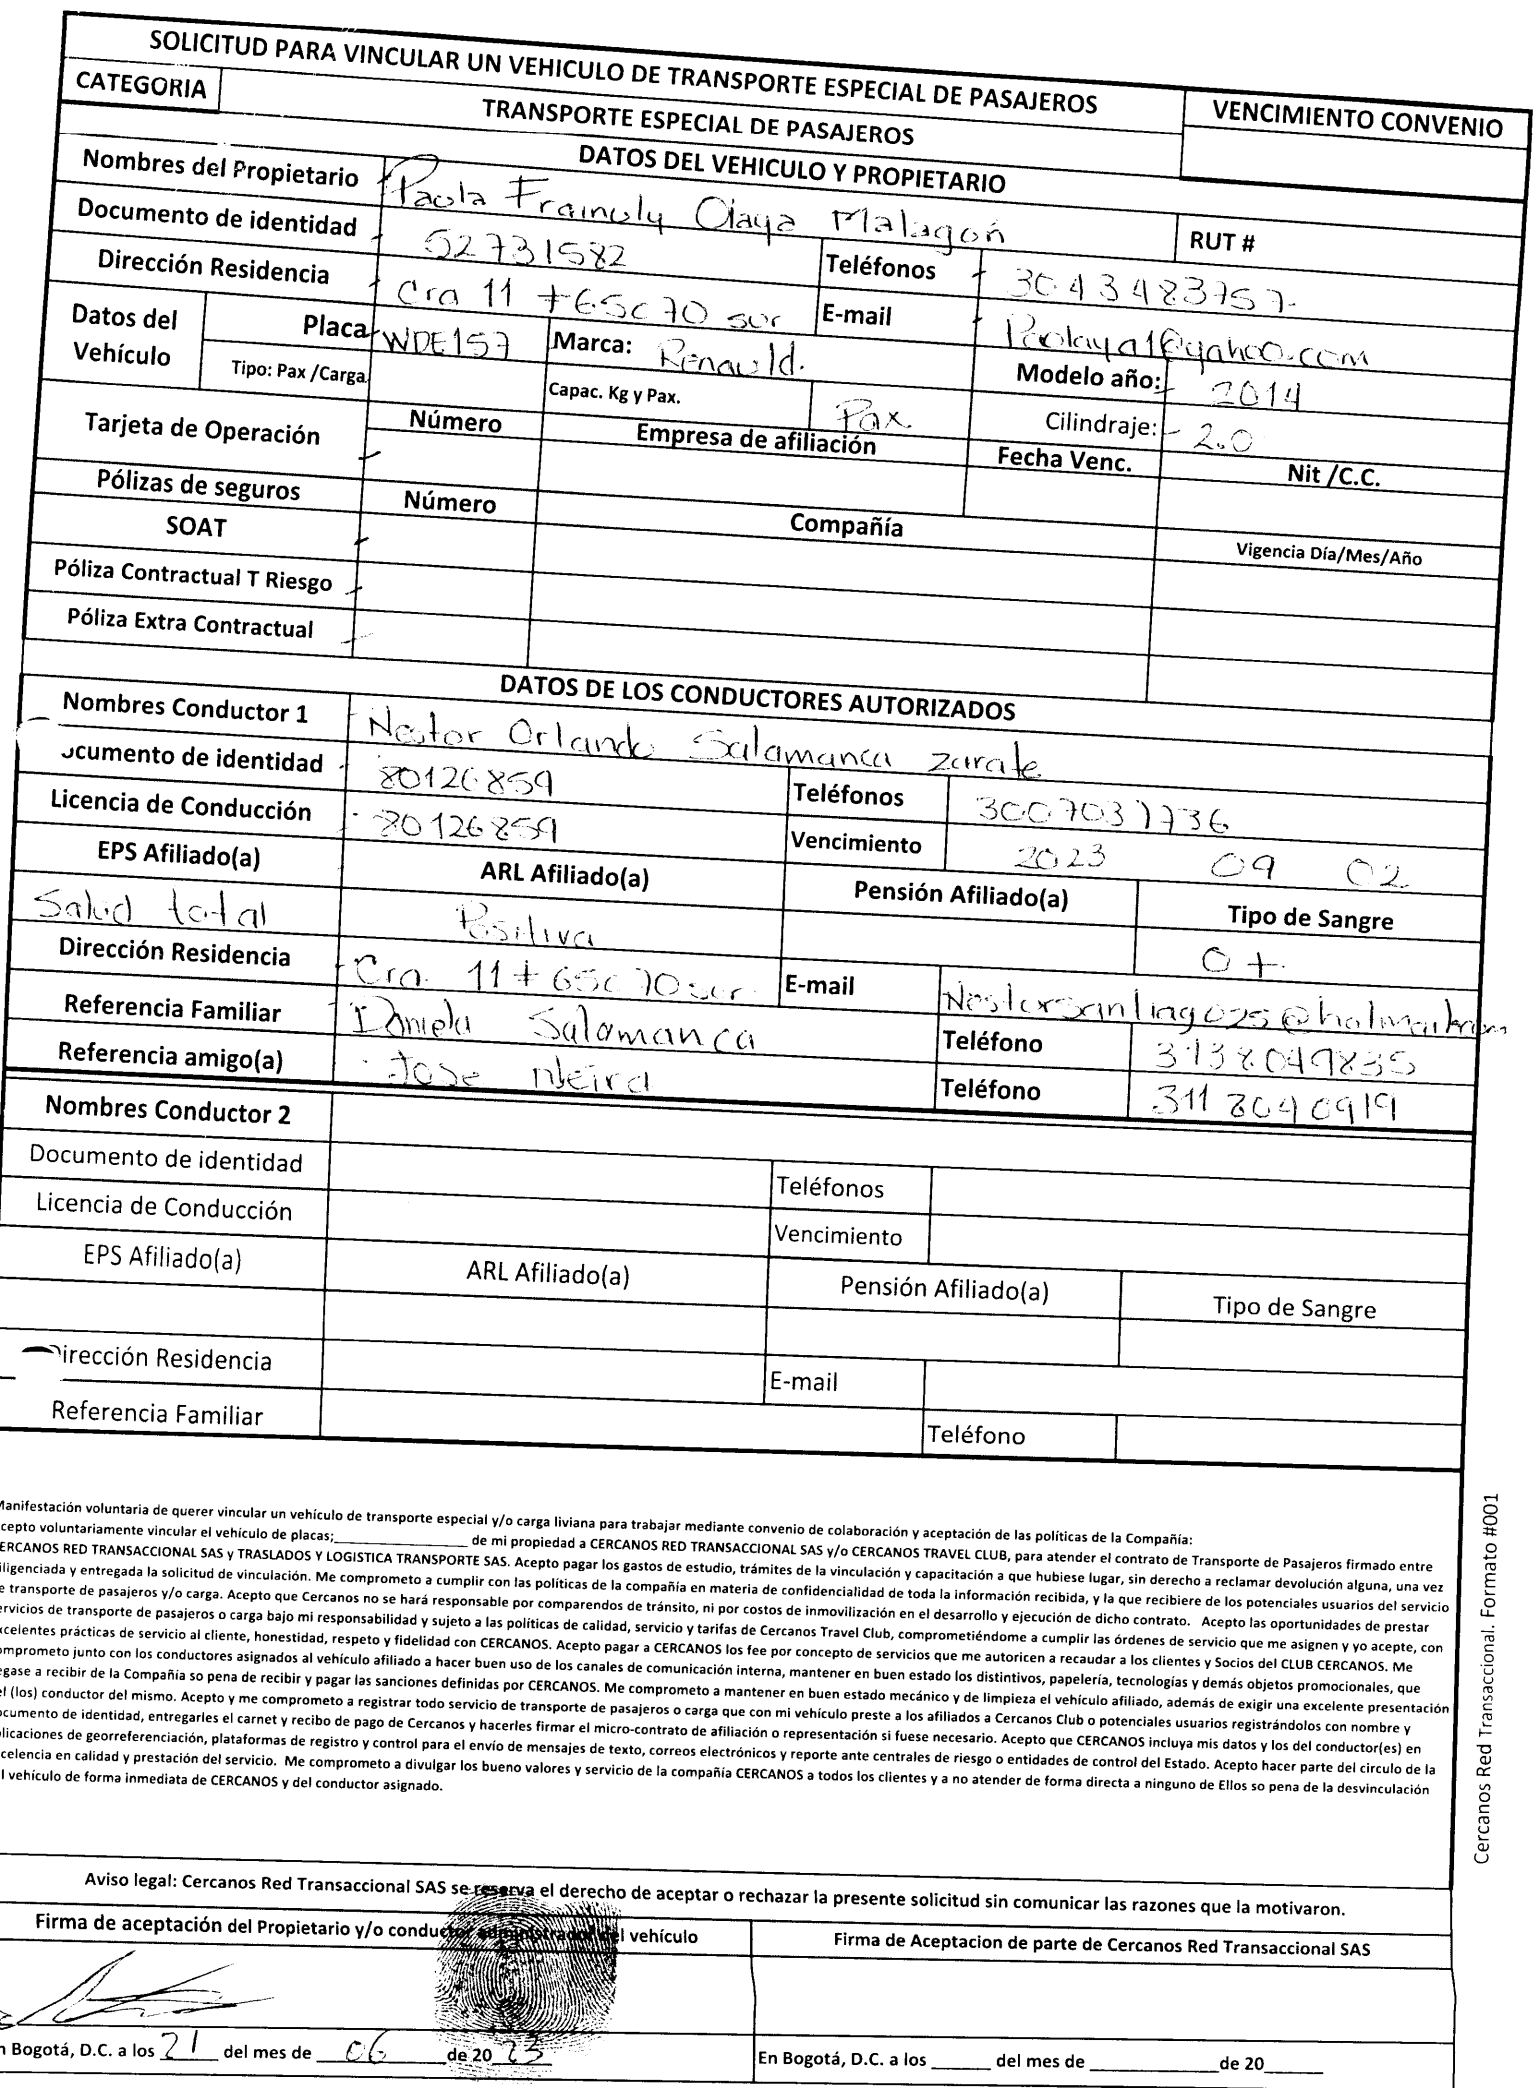 SOLICITUD PARA VINCULAR UN VEHICULO DE TRANSPORTE ESPECIAL DE PASAJEROS
VENCIMIENTO CONVENIO
CATEGORIA
TRANSPORTE ESPECIAL DE PASAJEROS
DATOS DEL VEHICULO Y PROPIETARIO
Nombres del Propietario Paola Olaya Malagón RUT #
Documento de identidad 52731582 Teléfonos 3043483757
Dirección Residencia Cra 11 # 65c 70 sur E-mail Paolaya1@yahoo.com
Datos del Vehículo Placa WDE157 Marca: Renauld. Modelo año: 2014
Tipo: Pax /Carga Capac. Kg y Pax. Pax Cilindraje: 2.0
Tarjeta de Operación Número Empresa de afiliación Fecha Venc. Nit /C.C.
Pólizas de seguros Número Compañía Vigencia Día/Mes/Año
SOAT
Póliza Contractual T Riesgo
Póliza Extra Contractual
DATOS DE LOS CONDUCTORES AUTORIZADOS
Nombres Conductor 1 Nestor Orlando Salamanca zarate
ocumento de identidad 80126859 Teléfonos
Licencia de Conducción 80126859 Vencimiento 2023 09 02
EPS Afiliado(a) ARL Afiliado(a) Pensión Afiliado(a) Tipo de Sangre
Salud total Positiva O+
Dirección Residencia Cra. 11 # 65c 70 sur E-mail
Referencia Familiar Daniela Salamanca Teléfono 3138049835
Referencia amigo(a) Jose Neira Teléfono 3118040919
Nombres Conductor 2
Documento de identidad Teléfonos
Licencia de Conducción Vencimiento
EPS Afiliado(a) ARL Afiliado(a) Pensión Afiliado(a) Tipo de Sangre
irección Residencia E-mail
Referencia Familiar Teléfono
Manifestación voluntaria de querer vincular un vehículo de transporte especial y/o carga liviana para trabajar mediante convenio de colaboración y aceptación de las políticas de la Compañía:
cepto voluntariamente vincular el vehículo de placas;____________ de mi propiedad a CERCANOS RED TRANSACCIONAL SAS y/o CERCANOS TRAVEL CLUB, para atender el contrato de Transporte de Pasajeros firmado entre
ERCANOS RED TRANSACCIONAL SAS y TRASLADOS Y LOGISTICA TRANSPORTE SAS. Acepto pagar los gastos de estudio, trámites de la vinculación y capacitación a que hubiese lugar, sin derecho a reclamar devolución alguna, una vez
iligenciada y entregada la solicitud de vinculación. Me comprometo a cumplir con las políticas de la compañía en materia de confidencialidad de toda la información recibida, y la que recibiere de los potenciales usuarios del servicio
e transporte de pasajeros y/o carga. Acepto que Cercanos no se hará responsable por comparendos de tránsito, ni por costos de inmovilización en el desarrollo y ejecución de dicho contrato. Acepto las oportunidades de prestar
ervicios de transporte de pasajeros o carga bajo mi responsabilidad y sujeto a las políticas de calidad, servicio y tarifas de Cercanos Travel Club, comprometiéndome a cumplir las órdenes de servicio que me asignen y yo acepte, con
xcelentes prácticas de servicio al cliente, honestidad, respeto y fidelidad con CERCANOS. Acepto pagar a CERCANOS los fee por concepto de servicios que me autoricen a recaudar a los clientes y Socios del CLUB CERCANOS. Me
omprometo junto con los conductores asignados al vehículo afiliado a hacer buen uso de los canales de comunicación interna, mantener en buen estado los distintivos, papelería, tecnologías y demás objetos promocionales, que
egase a recibir de la Compañía so pena de recibir y pagar las sanciones definidas por CERCANOS. Me comprometo a mantener en buen estado mecánico y de limpieza el vehículo afiliado, además de exigir una excelente presentación
el (los) conductor del mismo. Acepto y me comprometo a registrar todo servicio de transporte de pasajeros o carga que con mi vehículo preste a los afiliados a Cercanos Club o potenciales usuarios registrándolos con nombre y
ocumento de identidad, entregarles el carnet y recibo de pago de Cercanos y hacerles firmar el micro-contrato de afiliación o representación si fuese necesario. Acepto que CERCANOS incluya mis datos y los del conductor(es) en
plicaciones de georreferenciación, plataformas de registro y control para el envío de mensajes de texto, correos electrónicos y reporte ante centrales de riesgo o entidades de control del Estado. Acepto hacer parte del circulo de la
celencia en calidad y prestación del servicio. Me comprometo a divulgar los bueno valores y servicio de la compañía CERCANOS a todos los clientes y a no atender de forma directa a ninguno de Ellos so pena de la desvinculación
l vehículo de forma inmediata de CERCANOS y del conductor asignado.
Cercanos Red Transaccional. Formato #001
Aviso legal: Cercanos Red Transaccional SAS se reserva el derecho de aceptar o rechazar la presente solicitud sin comunicar las razones que la motivaron.
Firma de aceptación del Propietario y/o conductor administrador del vehículo Firma de Aceptacion de parte de Cercanos Red Transaccional SAS
n Bogotá, D.C. a los 21 del mes de 06 de 20 23 En Bogotá, D.C. a los ______ del mes de ____________ de 20______